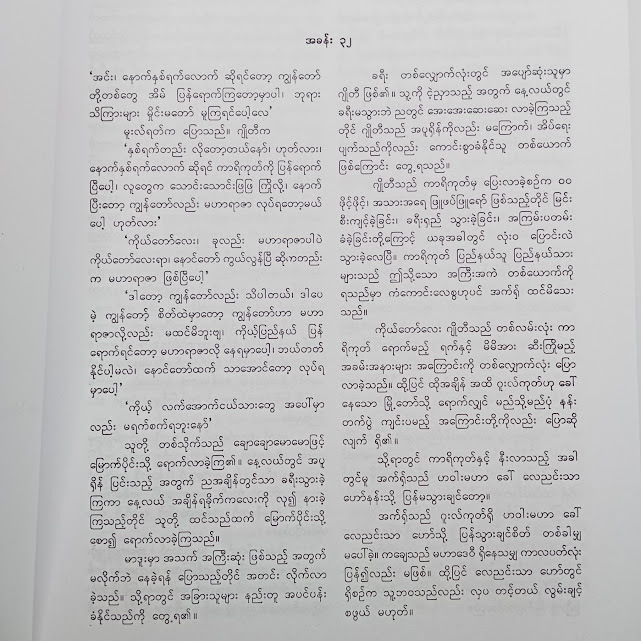 အခန်း ၃၂
‘အင်း၊ နောက်နှစ်ရက်လောက် ဆိုရင်တော့ ကျွန်တော်
တို့တစ်တွေ အိမ် ပြန်ရောက်ကြတော့မှာပါ၊ ဘုရား
သိကြားများ မှိုင်းမတော် မူကြရင်ပေါ့လေ’
မူးလ်ရတ်က ပြောသည်။ ဂျိုတီက
‘နှစ်ရက်တည်း လိုတော့တယ်နော်၊ ဟုတ်လား၊
နောက်နှစ်ရက်လောက် ဆိုရင် ကာရိကုတ်ကို ပြန်ရောက်
ပြီပေါ့၊ လူတွေက သောင်းသောင်းဖြဖြ ကြိုလို့၊ နောက်
ပြီးတော့ ကျွန်တော်လည်း မဟာရာဇာ လုပ်ရတော့မယ်
ပေါ့ ဟုတ်လား’
‘ကိုယ်တော်လေး၊ ခုလည်း မဟာရာဇာပါပဲ
ကိုယ်တော်လေးရာ၊ နောင်တော် ကွယ်လွန်ပြီ ဆိုကတည်း
က မဟာရာဇာ ဖြစ်ပြီပေါ့’
‘ဒါတော့ ကျွန်တော်လည်း သိပါတယ်၊ ဒါပေ
မဲ့ ကျွန်တော့် စိတ်ထဲမှာတော့ ကျွန်တော်ဟာ မဟာ
ရာဇာလို့လည်း မထင်မိဘူးဗျ၊ ကိုယ့်ပြည်နယ် ပြန်
ရောက်ရင်တော့ မဟာရာဇာလို နေရမှာပေါ့၊ ဘယ်တတ်
နိုင်ပါ့မလဲ၊ နောင်တော်ထက် သာအောင်တော့ လုပ်ရ
မှာပေါ့’
‘ကိုယ့် လက်အောက်ငယ်သားတွေ အပေါ်မှာ
လည်း မရက်စက်ရဘူးနော်’
သူတို့ တစ်သိုက်သည် ချောချောမောမောဖြင့်
မြောက်ပိုင်းသို့ ရောက်လာခဲ့ကြ၏။ နေ့လယ်တွင် အပူ
ရှိန် ပြင်းသည့် အတွက် ညအချိန်တွင်သာ ခရီးသွားခဲ့
ကြကာ နေ့လယ် အချိန်ရခိုက်ကလေးကို လု၍ နားခဲ့
ကြသည့်တိုင် သူတို့ ထင်သည်ထက် မြောက်ပိုင်းသို့
စော၍ ရောက်လာခဲ့ကြသည်။
မာဒူးမှာ အသက် အကြီးဆုံး ဖြစ်သည့် အတွက်
မလိုက်ဘဲ နေခဲ့ရန် ပြောသည့်တိုင် အတင်း လိုက်လာ
ခဲ့သည်။ သို့ရာတွင် အခြားသူများ နည်းတူ အပင်ပန်း
ခံနိုင်သည်ကို တွေ့ရ၏။
ခရီး တစ်လျှောက်လုံးတွင် အပျော်ဆုံးသူမှာ
ဂျိုတီ ဖြစ်၏။ သူ့ကို ငဲ့ညှာသည့် အတွက် နေ့လယ်တွင်
ခရီးမသွားဘဲ ညတွင် အေးအေးဆေးဆေး လာခဲ့ကြသည့်
တိုင် ဂျိုတီသည် အပူရှိန်ကိုလည်း မကြောက်၊ အိပ်ရေး
ပျက်သည်ကိုလည်း ကောင်းစွာခံနိုင်သူ တစ်ယောက်
ဖြစ်ကြောင်း တွေ့ရသည်။
ဂျိုတီသည် ကာရိကုတ်မှ ပြေးလာခဲ့စဉ်က ဝဝ
ဖိုင့်ဖိုင့်၊ အသားအရေ ဖြူဖပ်ဖြူရော် ဖြစ်သည့်တိုင် မြင်း
စီးကျင့်ခဲ့ခြင်း၊ ခရီးရှည် သွားခဲ့ခြင်း၊ အကြမ်းပတမ်း
ခံခဲ့ခြင်းတို့ကြောင့် ယခုအခါတွင် လုံးဝ ပြောင်းလဲ
သွားခဲ့လေပြီ။ ကာရိကုတ် ပြည်နယ်သူ ပြည်နယ်သား
များသည် ဤသို့သော အကြီးအကဲ တစ်ယောက်ကို
ရသည်မှာ ကံကောင်းလေစွဟုပင် အက်ရှ် ထင်မိသေး
သည်။
ကိုယ်တော်လေး ဂျိုတီသည် တစ်လမ်းလုံး ကာ
ရိကုတ် ရောက်မည့် ရက်နှင့် မိမိအား ဆီးကြိုမည့်
အခမ်းအနားများ အကြောင်းကို တစ်လျှောက်လုံး ပြော
လာခဲ့သည်။ ထို့ပြင် ထိုအချိန် အထိ ဂူးလ်ကုတ်ဟု ခေါ်
နေသော မြို့တော်သို့ ရောက်လျှင် မည်သို့မည်ပုံ နန်း
တက်ပွဲ ကျင်းပမည့် အကြောင်းတို့ကိုလည်း ပြောဆို
လျက် ရှိ၏။
သို့ရာတွင် ကာရိကုတ်နှင့် နီးလာသည့် အခါ
တွင်မူ အက်ရှ်သည် ဟဝါးမဟာ ခေါ် လေညင်းသာ
ဟော်နန်းသို့ ပြန်မသွားချင်တော့။
အက်ရှ်သည် ဂူးလ်ကုတ်ရှိ ဟဝါးမဟာ ခေါ်
လေညင်းသာ ဟော်သို့ ပြန်သွားချင်စိတ် တစ်ခါမျှ
မပေါ်ခဲ့။ ကချေသည် မဟာဒေဝီ ရှိနေသမျှ ကာလပတ်လုံး
ပြန်၍လည်း မဖြစ်။ ထို့ပြင် လေညင်းသာ ဟော်တွင်
ရှိစဉ်က သူ့ဘဝသည်လည်း လှပ တင့်တယ် လွမ်းချင့်
စဖွယ် မဟုတ်။